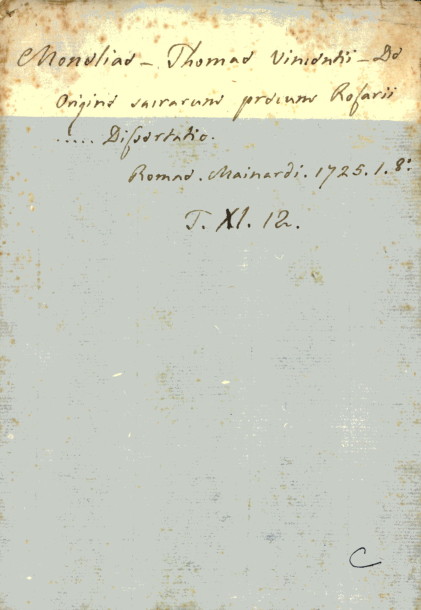 Moneliae – Thomae Vincentii – De
Origine sacrarum precum Rosarii
..... Dissertatio.
Romae. Mainardi. 1725. 1. 8.°
T. XI. 12.
C